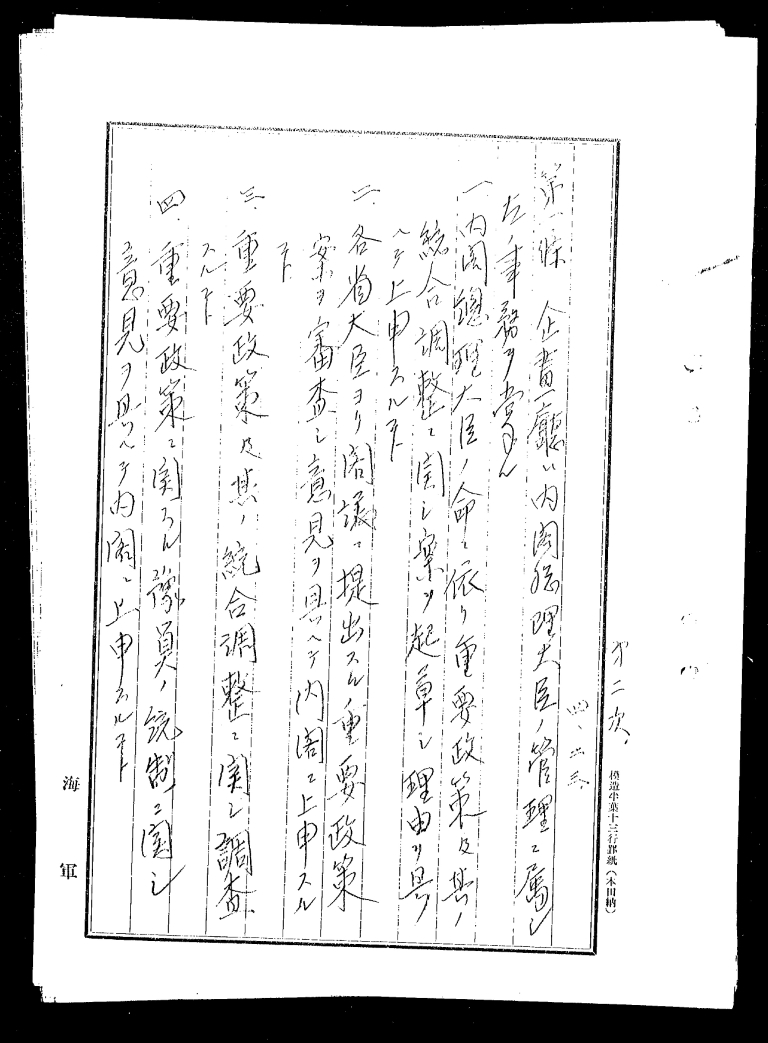 第二次、
四、六、三、
第一條 企畫廳ハ内閣総理大臣ノ管理ニ属シ
左ノ事務ヲ掌ル
一、内閣總理大臣ノ命ニ依リ重要政策及其ノ
統合調整ニ関シ案ヲ起草シ理由ヲ具
ヘテ上申スルコト
二、各省大臣ヨリ閣議ニ提出スル重要政策
案ヲ審査シ意見ヲ具ヘテ内閣ニ上申スル
コト
三、重要政策及其ノ統合調整ニ関シ調査
スルコト
四、重要政策ニ関スル豫算ノ統制ニ関シ
意見ヲ具ヘテ内閣ニ上申スルコト
海軍